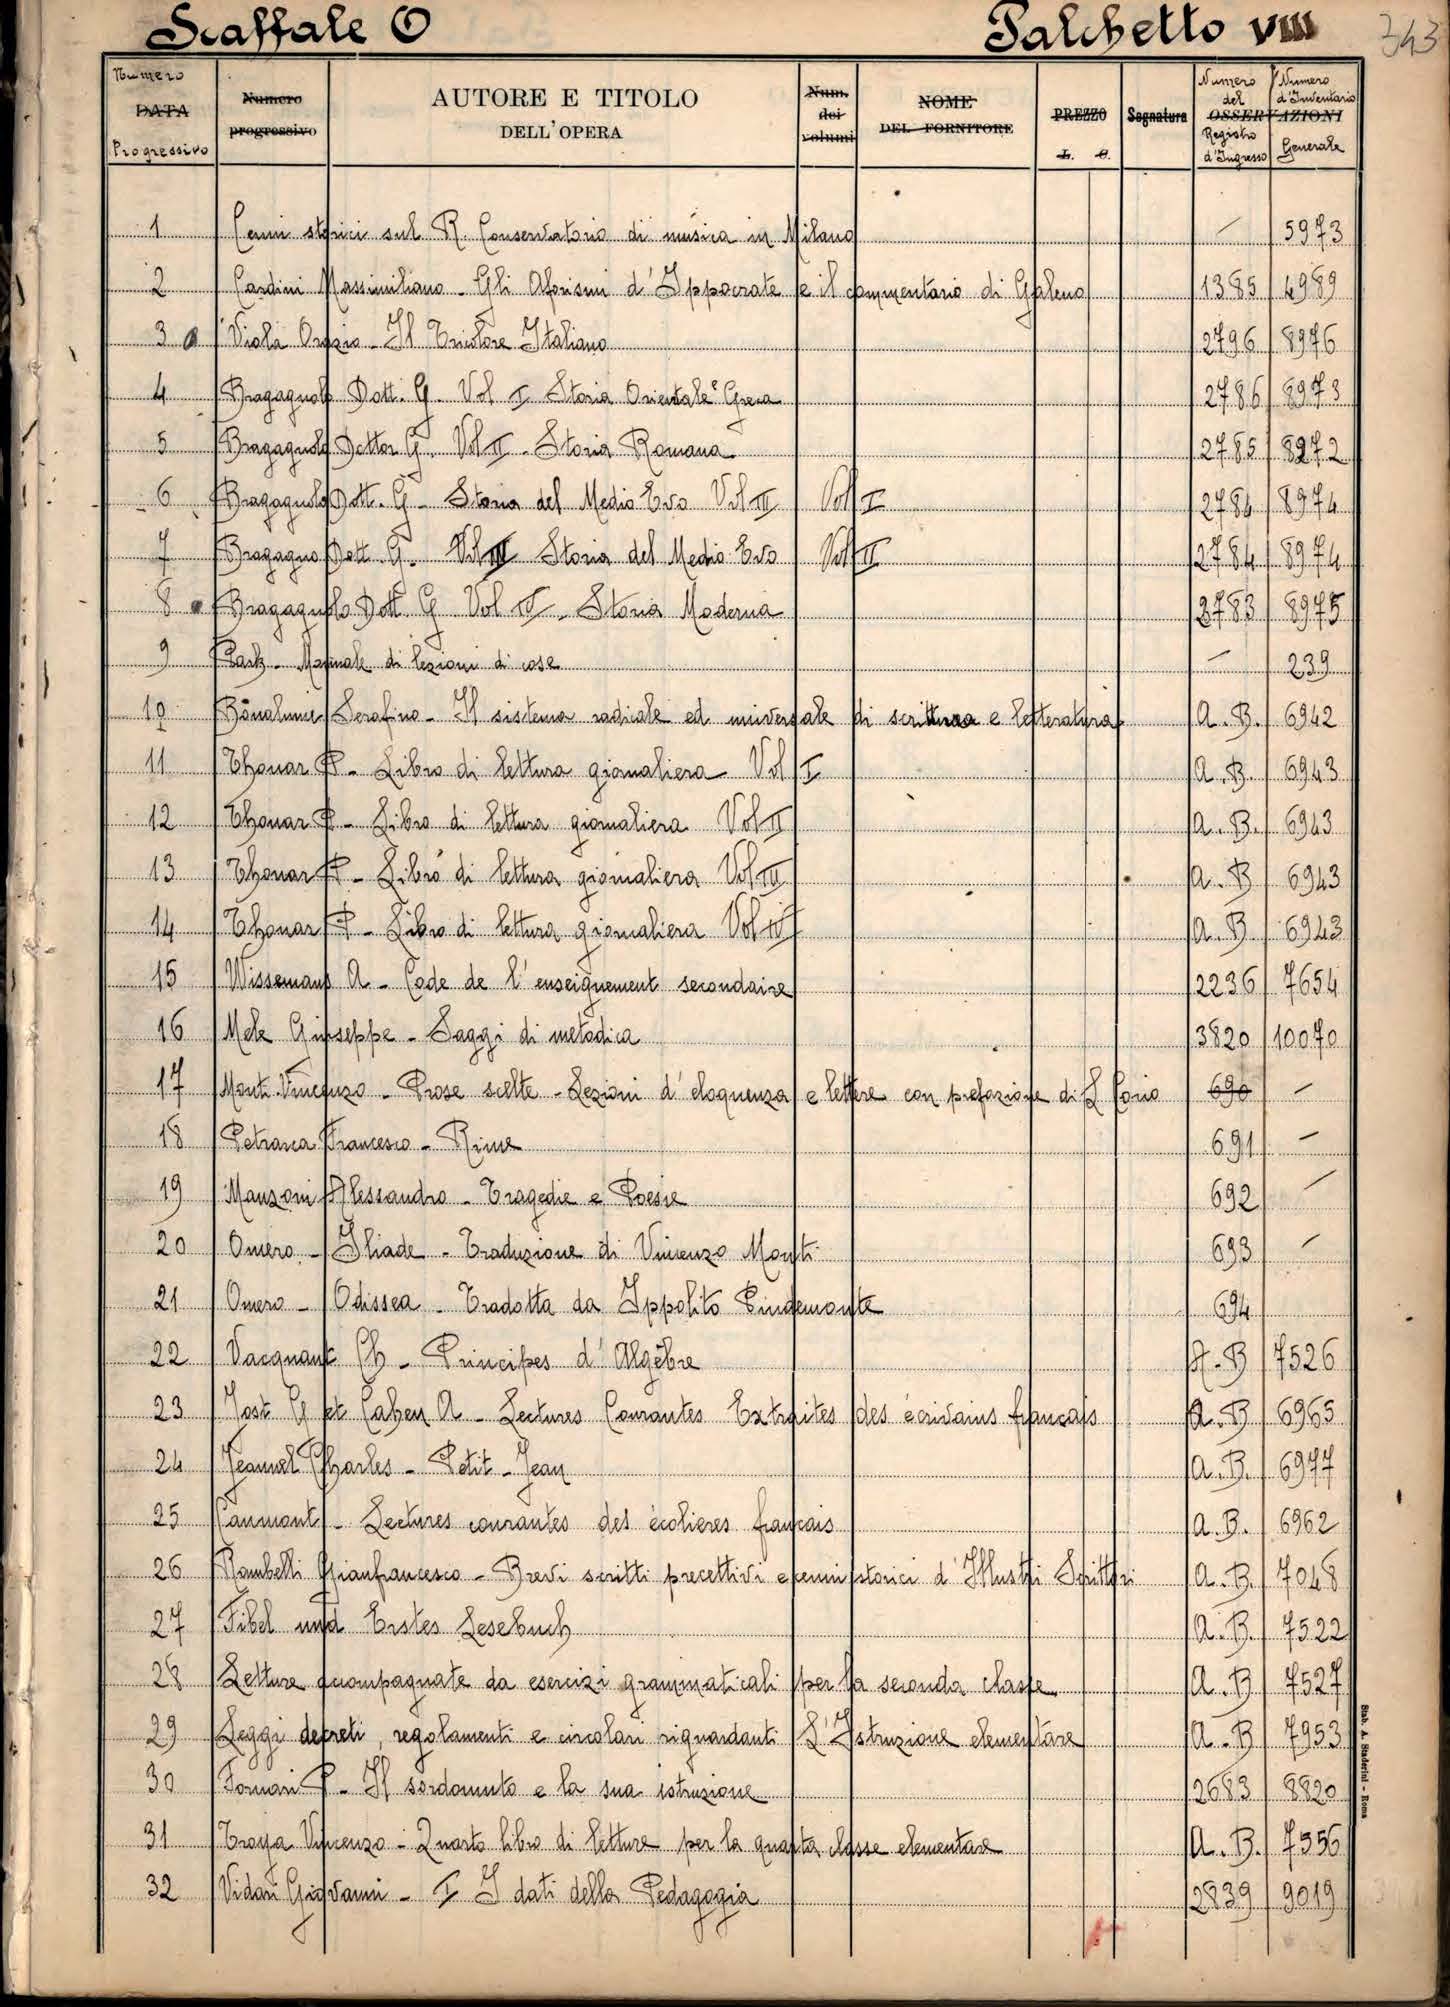 Scaffale O Palchetto VIIII 343
Numero DATA Progressivo Numero progressivo AUTORE E TITOLO DELL'OPERA Num. dei volumi NOME DEL FORNITORE PREZZO L. C. Segnatura OSSERVAZIONI Numero del Registro d'Ingresso Numero d'Inventario Generale
1 Cenni storici sul R. Conservatorio di musica in Milano — 5973
2 Cardini Massimiliano - Gli Aforismi d'Ippocrate e il commentario di Galeno 1385 4989
3 Viola Orazio - Il Tricolore Italiano 2796 8976
4 Bragagnolo Dott. G. Vol I Storia Orientale e Greca 2786 8973
5 Bragagnolo Dottor G. Vol II - Storia Romana 2785 8972
6 Bragagnolo Dott. G - Storia del Medio Evo Vol III Vol I 2784 8974
7 Bragagno Dott. G. Vol III Storia del Medio Evo Vol II 2784 8974
8 Bragagnolo Dott G Vol IV - Storia Moderna 2783 8975
9 Manuale di lezioni di cose — 239
10 Serafino - Il sistema radicale ed universale di scrittura e letteratura A. B. 6942
11 Thouar P - Libro di lettura giornaliera Vol I A. B. 6943
12 Thouar P - Libro di lettura giornaliera Vol II A. B. 6943
13 Thouar P - Libro di lettura giornaliera Vol III A. B 6943
14 Thouar P - Libro di lettura giornaliera Vol IV A. B. 6943
15 Wissemans A - Code de l'enseignement secondaire 2236 7654
16 Mele Giuseppe - Saggi di metodica 3820 10070
17 Monti Vincenzo - Prose scelte - Lezioni d'eloquenza e lettere con prefazione di L Corio 690 —
18 Petrarca Francesco - Rime 691 —
19 Manzoni Alessandro - Tragedie e Poesie 692 —
20 Omero - Iliade - Traduzione di Vincenzo Monti 693 —
21 Omero - Odissea - Tradotta da Ippolito Pindemonte 694
22 Vacquant Ch - Principes d'Algèbre A. B 7526
23 Jost G et Cahen A - Lectures Courantes Extraites des écrivains français A. B 6965
24 Jeannel Charles - Petit-Jean A. B. 6977
25 Caumont - Lectures courantes des écolieres français A. B. 6962
26 Rambelli Gianfrancesco - Brevi scritti precettivi e cenni storici d'Illustri Scrittori A. B. 7048
27 Fibel und Erstes Lesebuch A. B. 7522
28 Letture accompagnate da esercizi grammaticali per la seconda classe A. B 7527
29 Leggi decreti, regolamenti e circolari riguardanti L'Istruzione elementare A. B 7953
30 Fornari P - Il sordomuto e la sua istruzione 2683 8820
31 Troya Vincenzo - Quarto libro di letture per la quarta classe elementare A. B. 7556
32 Vidari Giovanni - I I dati della Pedagogia 2839 9019
Stab. A. Staderini - Roma